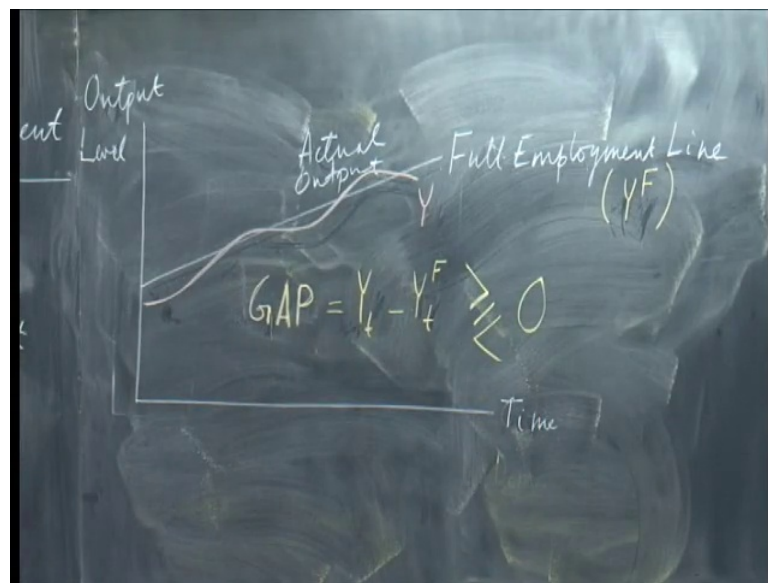 Output
Level
Actual
Output
Full Employment Line
(Y^F)
Y
GAP = Y_t - Y_t^F ⪌ 0
Time
ent